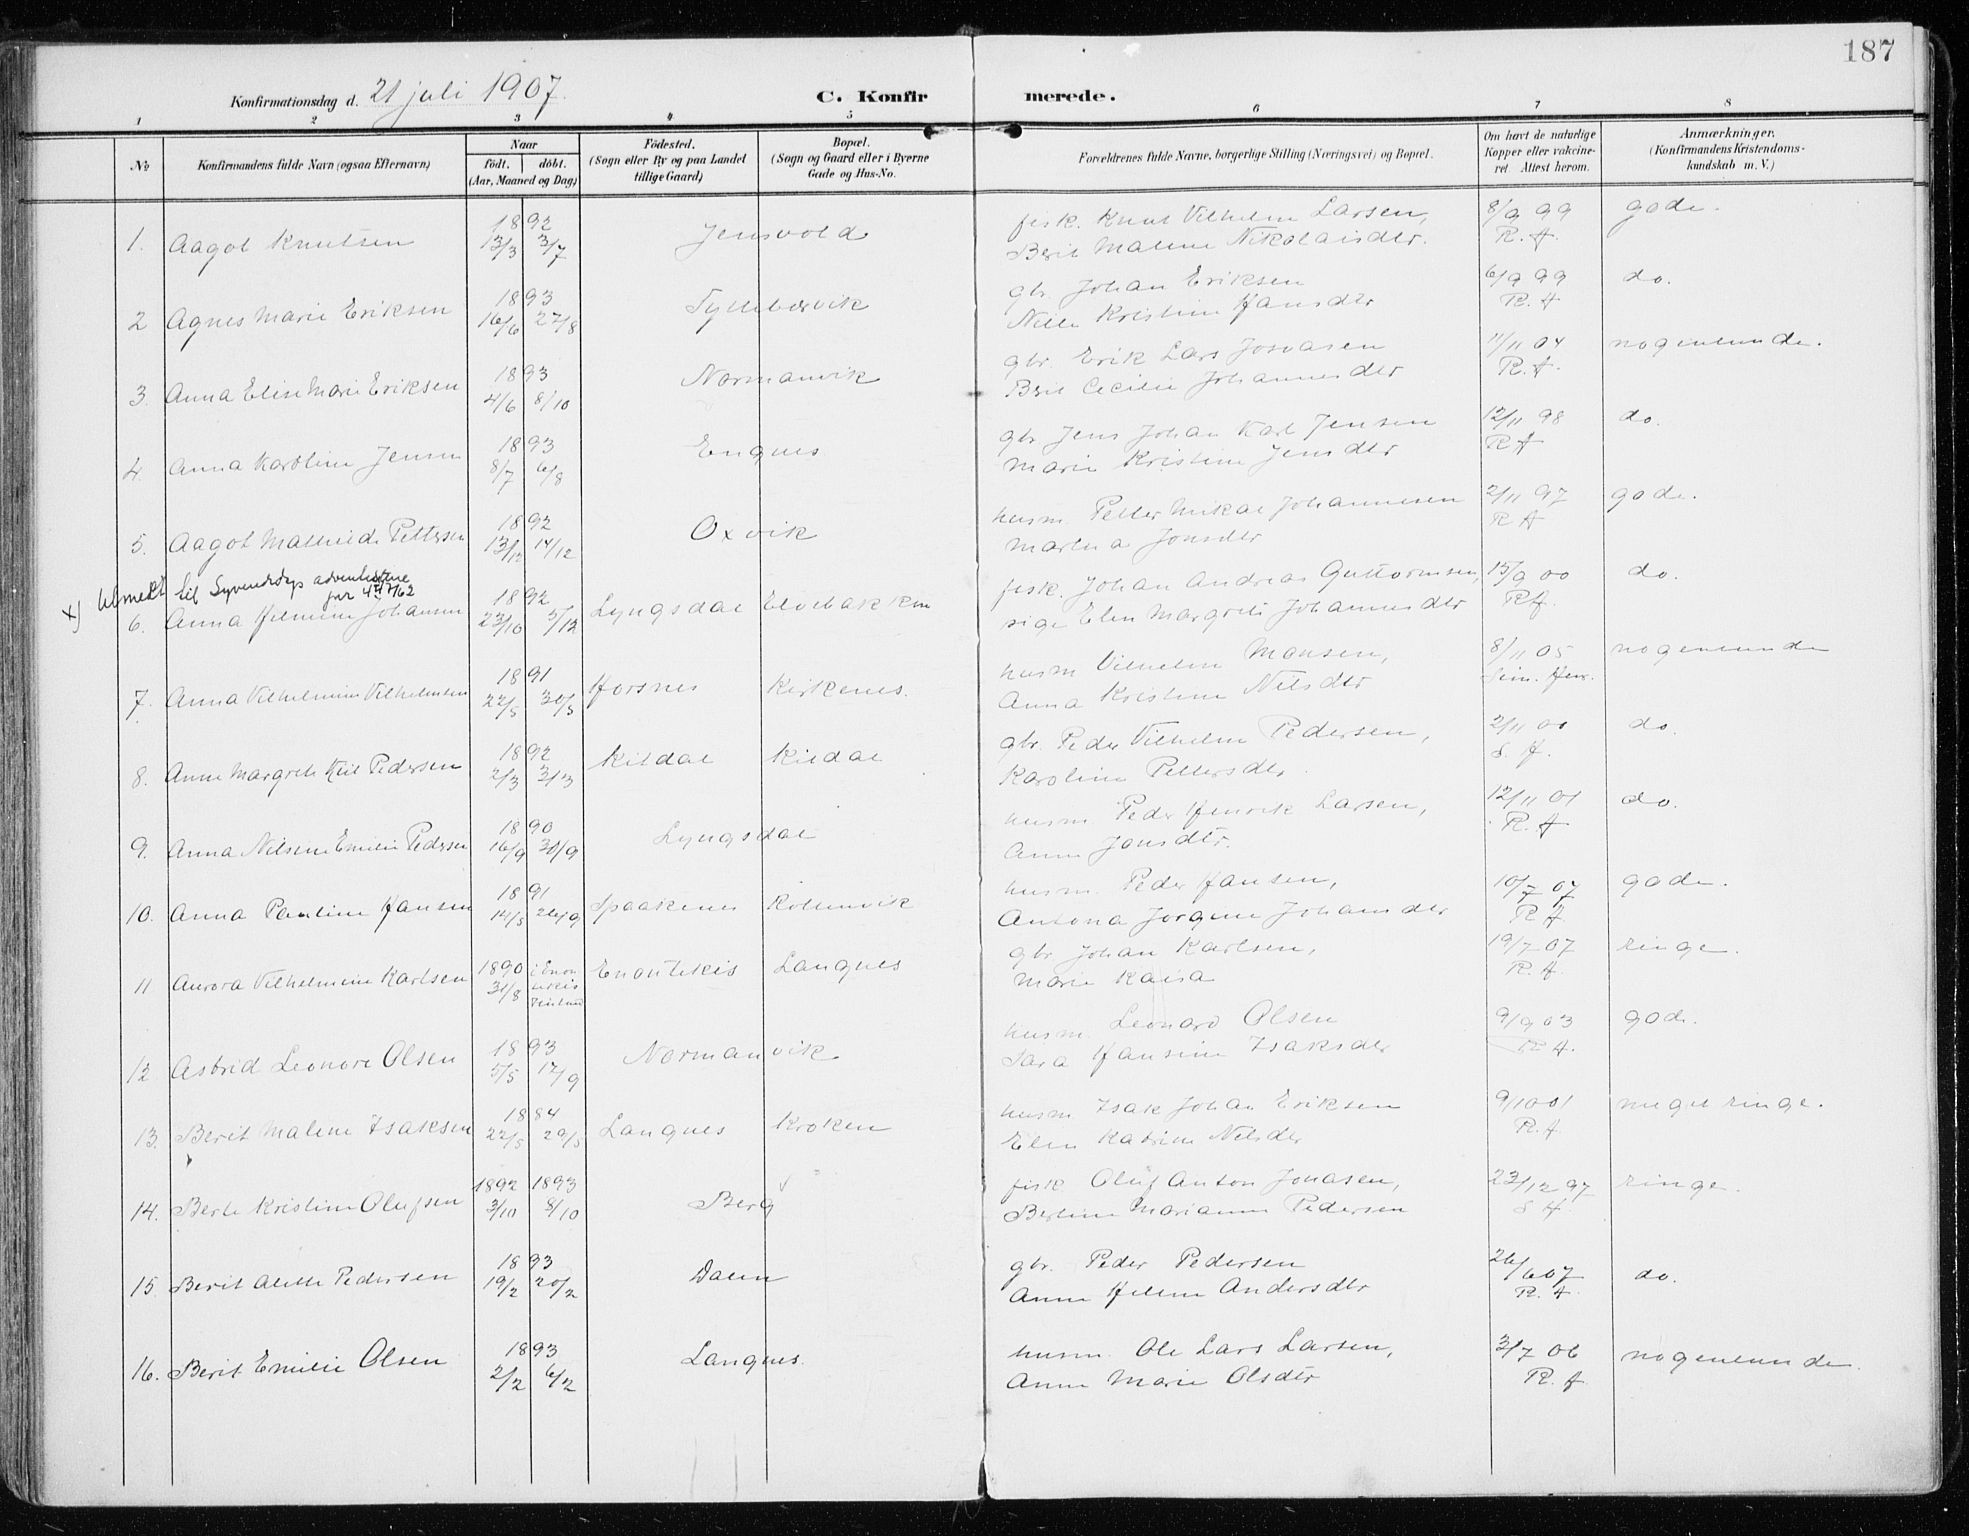 187
Konfirmationsdag d. 21 juli 1907.
C. Konfirmerede.
1 2 3 4 5 6 7 8
No
Konfirmandens fulde Navn (ogsaa Efternavn)
Naar
födt. döbt.
(Aar, Maaned og Dag)
Födested.
(Sogn eller By og paa Landet
tillige Gaard)
Bopæl.
(Sogn og Gaard eller i Byerne
Gade og Hus-No.
Forældrenes fulde Navne, borgerlige Stilling (Næringsvei) og Bopæl.
Om havt de naturlige
Kopper eller vakcine-
ret. Attest herom.
Anmærkninger.
(Konfirmandens Kristendoms-
kundskab m. V.)
1. Aagot Knutsen 1892 13/3 3/7 Jensvold fisk. Knut Vilhelm Larsen, 8/9 99 gode.
Berit Malene Nikolaisdtr. R. H.
2 Agnes Marie Eriksen 1893 16/6 27/8 Tyttebærvik gbr. Johan Eriksen 6/9 99 do.
Nille Kristine Hansdtr R. H
3. Anna Elise Marie Eriksen 1893 4/6 8/10 Normanvik gbr. Erik Lars Josvasen 11/11 04 nogenlunde.
Berit Cecilie Johannesdtr R. H.
4. Anna Karoline Jensen 1893 8/7 6/8 Engnes gbr Jens Johan Karl Jensen 12/11 98 do.
Marie Kristine Jensdtr R H
5. Aagot Mathilde Pettersen 1892 13/12 14/12 Oxvik husm. Petter Mikal Johannesen 2/11 97 gode.
Martha Jonsdtr R H
x) utmeldt til Syvendedags adventistene
6. Anna Helmine Johansen 1892 23/10 5/12 Lyngsdal Elvebakken fisk. Johan Andreas Guttormsen, 15/9 00 do.
sige Elen Margrete Johannesdtr RH.
7. Anna Vilhelmine Vilhelmsen 1891 22/5 30/5 Horsnes Kirkenes. husm Vilhelm Monsen, 8/11 05 nogenlunde
Anna Kristine Nilsdtr Sim. Hen.
8. Anne Margrete Keil Pedersen 1892 2/3 3/3 Kildal Kildal gbr. Peder Vilhelm Pedersen, 2/11 00 do.
Karoline Pettersdtr. S. H.
9. Anna Nilsine Emilie Pedersen 1890 16/9 30/9 Lyngsdal husm. Peder Henrik Larsen, 12/11 01 do.
Anne Jonsdtr. R. H
10. Anna Pauline Hansen 1891 14/5 26/9 Spaakenes Rotenvik husm. Peder Hansen, 10/7 07 gode.
Antona Jorgine Johansdtr R H.
11 Aurora Vilhelmine Karlsen 1890 31/8 i Enontekis Finland Enontekis Langnes gbr Johan Karlsen, 19/7 07 ringe.
Marie Kaisa R. H.
12. Astrid Leonore Olsen 1893 5/5 17/9 Normanvik husm. Leonard Olsen 9/9 03 gode.
Sara Hansine Isaksdtr R H.
13. Berit Malene Isaksen 1884 22/5 29/5 Langnes Kroken husm. Isak Johan Eriksen 9/10 01 meget ringe.
Elen Katrine Nilsdtr R. H.
14. Berte Kristine Olufsen 1892 3/10 1893 8/10 Berg fisk Oluf Anton Jonasen, 23/12 97 ringe.
Bertine Marianne Pedersen S H.
15. Berit Alette Pedersen 1893 19/2 20/2 Dalen gbr. Peder Pedersen 26/6 07 do.
Anne Helene Andersdtr R. H.
16. Berit Emilie Olsen 1893 2/2 6/2 Langnes. husm. Ole Lars Larsen, 3/7 06 nogenlunde.
Anne Marie Olsdtr R. H.